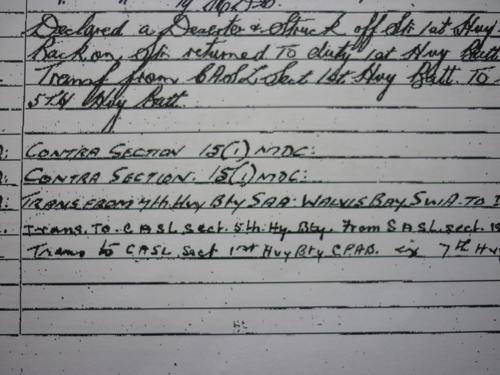 Declared a Deserter & Struck off Str 1st Hvy
Back on Str returned to duty 1st Hvy Batt
Transf from CASL Sect 1st Hvy Batt. To
5th Hvy Batt.
CONTRA SECTION 15(1) MDC:
CONTRA SECTION. 15(1) MDC:
TRANS FROM 4th Hvy Bty SAA. WALVIS BAY SWA. TO
Trans. To CASL sect. 5th. Hy. Bty. From SASL. sect.
Trans to CASL sect 1st Hvy Bty CPAD. ex 7th Hvy